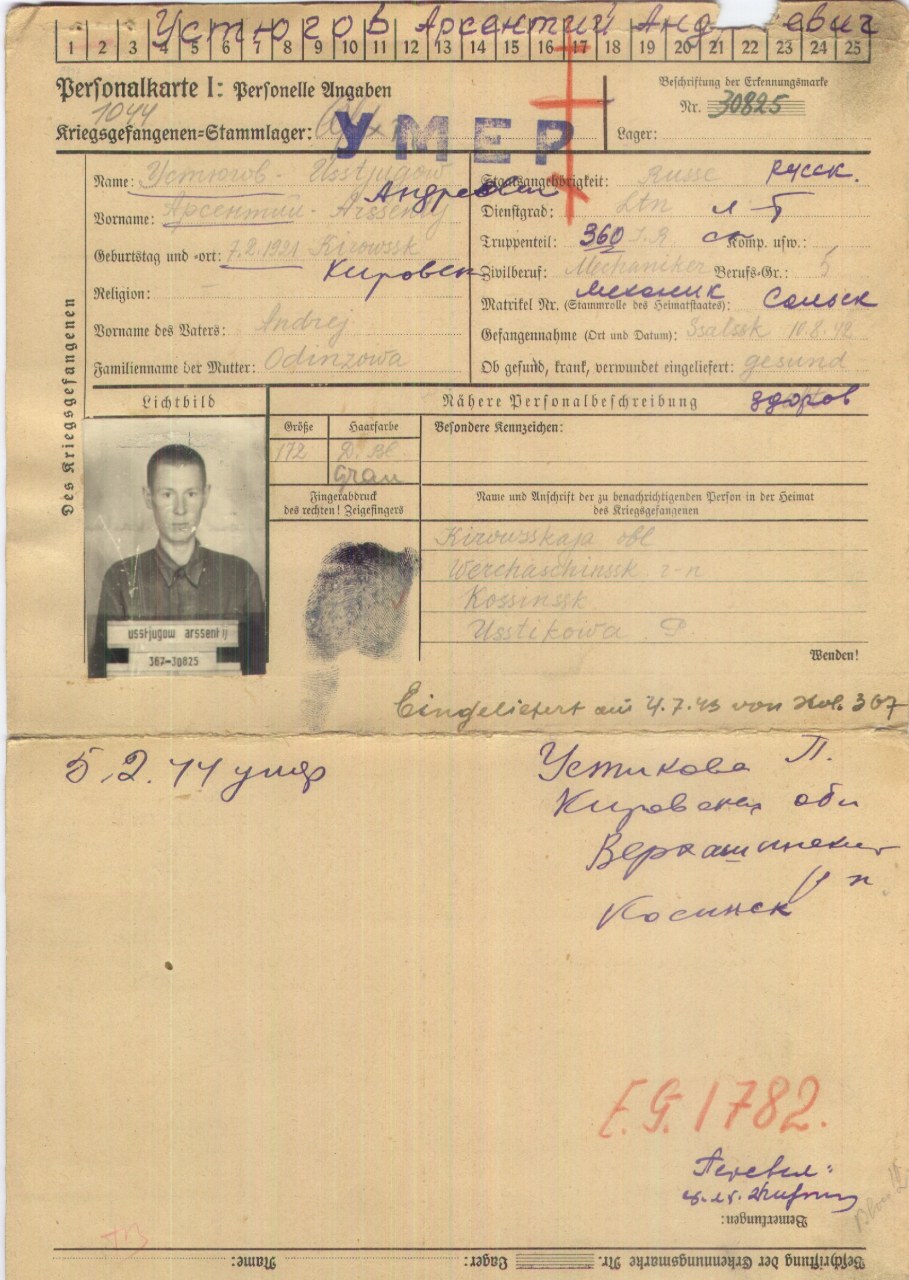 Устюгов Арсентий Анд евич
1 2 3 4 5 6 7 8 9 10 11 12 13 14 15 16 17 18 19 20 21 22 23 24 25
Personalkarte I: Personelle Angaben
1044
Kriegsgefangenen=Stammlager:
УМЕР
Beschriftung der Erkennungsmarke
Nr. 30825
Lager:
Des Kriegsgefangenen
Name: Устюгов - Usstjugow
Андреевич
Vorname: Арсентий - Arssentij
Geburtstag und =ort: 7.2.1921 Kirowssk
Кировск
Religion: -
Vorname des Vaters: Andrej
Familienname der Mutter: Odinzowa
Staatsangehörigkeit: Russe Русск.
Dienstgrad: Ltn л-т
Truppenteil: 360 I.R Komp. usw.:
Zivilberuf: Mechaniker Berufs=Gr.: 5
механик
Matrikel Nr. (Stammrolle des Heimatstaates): Сальск
Gefangennahme (Ort und Datum): Ssalssk 10.8.42
Ob gesund, krank, verwundet eingeliefert: gesund
здоров
Lichtbild
Nähere Personalbeschreibung
Größe
Haarfarbe
Besondere Kennzeichen:
172
D. Bl.
Grau
Fingerabdruck
des rechten! Zeigefingers
Name und Anschrift der zu benachrichtigenden Person in der Heimat
des Kriegsgefangenen
Kirowsskaja obl
Werchaschinssk r-n
Kossinssk
Usstikowa P.
Wenden!
usstjugow arssentij
367-30825
Eingeliefert am 4.7.43 von 367
5.2.44 умер
Устикова П.
Кировская обл
Верхашинский
р н
Косинск
E.G. 1782.
Перевел:
Bemerkungen:
Beschriftung der Erkennungsmarke Nr. Lager: Name: